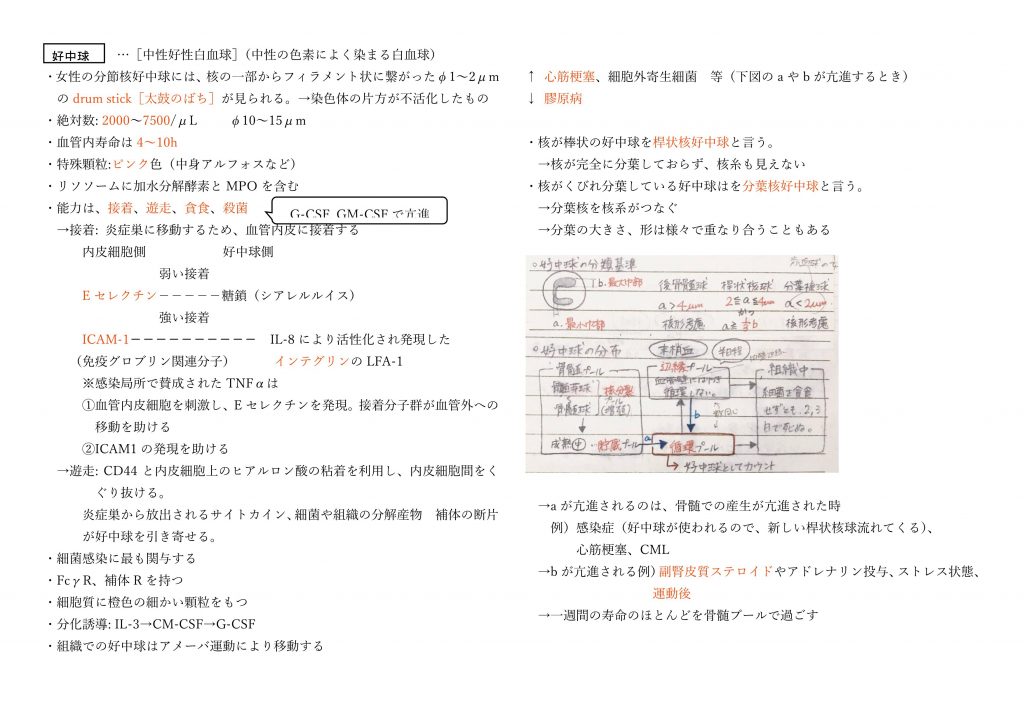 好中球 …［中性好性白血球］（中性の色素によく染まる白血球）
・女性の分節核好中球には、核の一部からフィラメント状に繋がったφ1～2μm
の drum stick［太鼓のばち］が見られる。→染色体の片方が不活化したもの
・絶対数: 2000～7500/μL φ10～15μm
・血管内寿命は 4～10h
・特殊顆粒:ピンク色（中身アルフォスなど）
・リソソームに加水分解酵素と MPO を含む
・能力は、接着、遊走、貪食、殺菌
G-CSF, GM-CSF で亢進
→接着: 炎症巣に移動するため、血管内皮に接着する
内皮細胞側 好中球側
弱い接着
E セレクチン－－－－－糖鎖（シアレルルイス）
強い接着
ICAM-1－－－－－－－－－－ IL-8 により活性化され発現した
（免疫グロブリン関連分子） インテグリンの LFA-1
※感染局所で賛成された TNFαは
①血管内皮細胞を刺激し、E セレクチンを発現。接着分子群が血管外への
移動を助ける
②ICAM1 の発現を助ける
→遊走: CD44 と内皮細胞上のヒアルロン酸の粘着を利用し、内皮細胞間をく
ぐり抜ける。
炎症巣から放出されるサイトカイン、細菌や組織の分解産物 補体の断片
が好中球を引き寄せる。
・細菌感染に最も関与する
・FcγR、補体 R を持つ
・細胞質に橙色の細かい顆粒をもつ
・分化誘導: IL-3→CM-CSF→G-CSF
・組織での好中球はアメーバ運動により移動する
↑ 心筋梗塞、細胞外寄生細菌 等（下図の a や b が亢進するとき）
↓ 膠原病
・核が棒状の好中球を桿状核好中球と言う。
→核が完全に分葉しておらず、核糸も見えない
・核がくびれ分葉している好中球はを分葉核好中球と言う。
→分葉核を核系がつなぐ
→分葉の大きさ、形は様々で重なり合うこともある
○好中球の分類基準
b.最大巾部 後骨髄球 桿状核球 分葉核球
a>4μm 2≦a≦4μm a<2μm
かつ
a.最小巾部 核形考慮 a≧1/3b 核形考慮
○好中球の分布 末梢血
骨髄プール 辺縁プール 組織中
血管壁に
循環しない。
細菌を貪食
骨髄球 せずとも、2,3
日で死ぬ。
b
成熟 貯蔵プール a 循環プール
→好中球としてカウント
→a が亢進されるのは、骨髄での産生が亢進された時
例）感染症（好中球が使われるので、新しい桿状核球流れてくる）、
心筋梗塞、CML
→b が亢進される例）副腎皮質ステロイドやアドレナリン投与、ストレス状態、
運動後
→一週間の寿命のほとんどを骨髄プールで過ごす